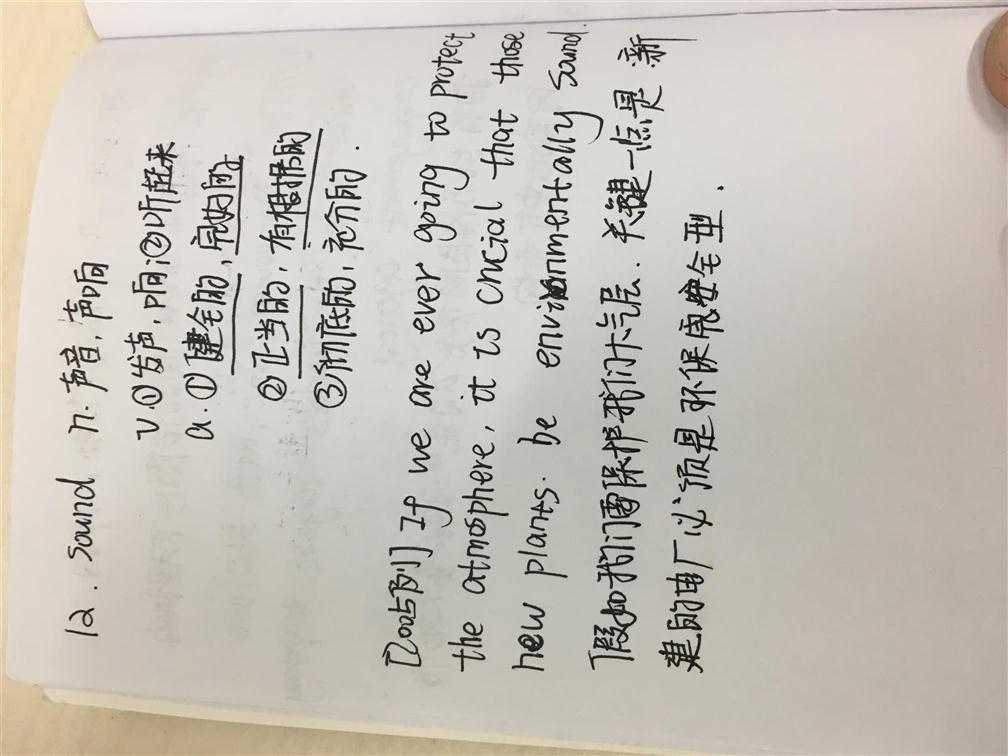 12. sound n. 声音，声响
v.①发声，响；②听起来
a.①健全的，完好的
②正当的，有根据的
③彻底的，充分的.
[2005阅] If we are ever going to protect
the atmosphere, it is crucial that those
new plants. be environmentally sound.
假如我们要保护我们大气层.关键一点是新
建的电厂必须是环保或安全型.